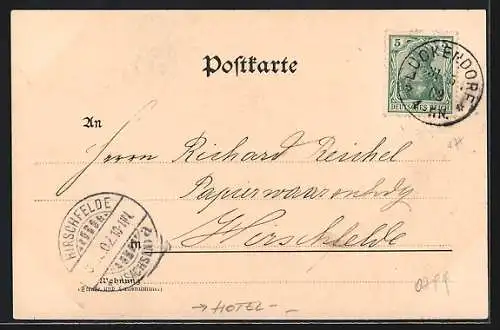 Postkarte
5
DEUTSCHES REICH
LÜCKENDORF
An
Herrn Richard Reichel
Papierwaarenhdlg
HIRSCHFELDE
in Hirschfelde
Wohnung
(Straße und Hausnummer)
→ HOTEL -